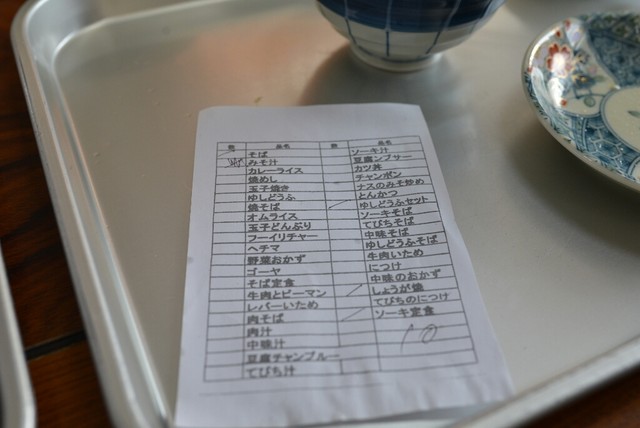 数 品名 数 品名
そば
みそ汁
カレーライス
焼めし
玉子焼き
ゆしどうふ
焼そば
オムライス
玉子どんぶり
フーイリチャー
ヘチマ
野菜おかず
ゴーヤ
そば定食
牛肉とピーマン
レバーいため
肉そば
肉汁
中味汁
豆腐チャンプルー
てびち汁
ソーキ汁
豆腐ンブサー
カツ丼
チャンポン
ナスのみそ炒め
とんかつ
ゆしどうふセット
ソーキそば
てびちそば
中味そば
ゆしどうふそば
牛肉いため
につけ
中味のおかず
しょうが焼
てびちのにつけ
ソーキ定食
10